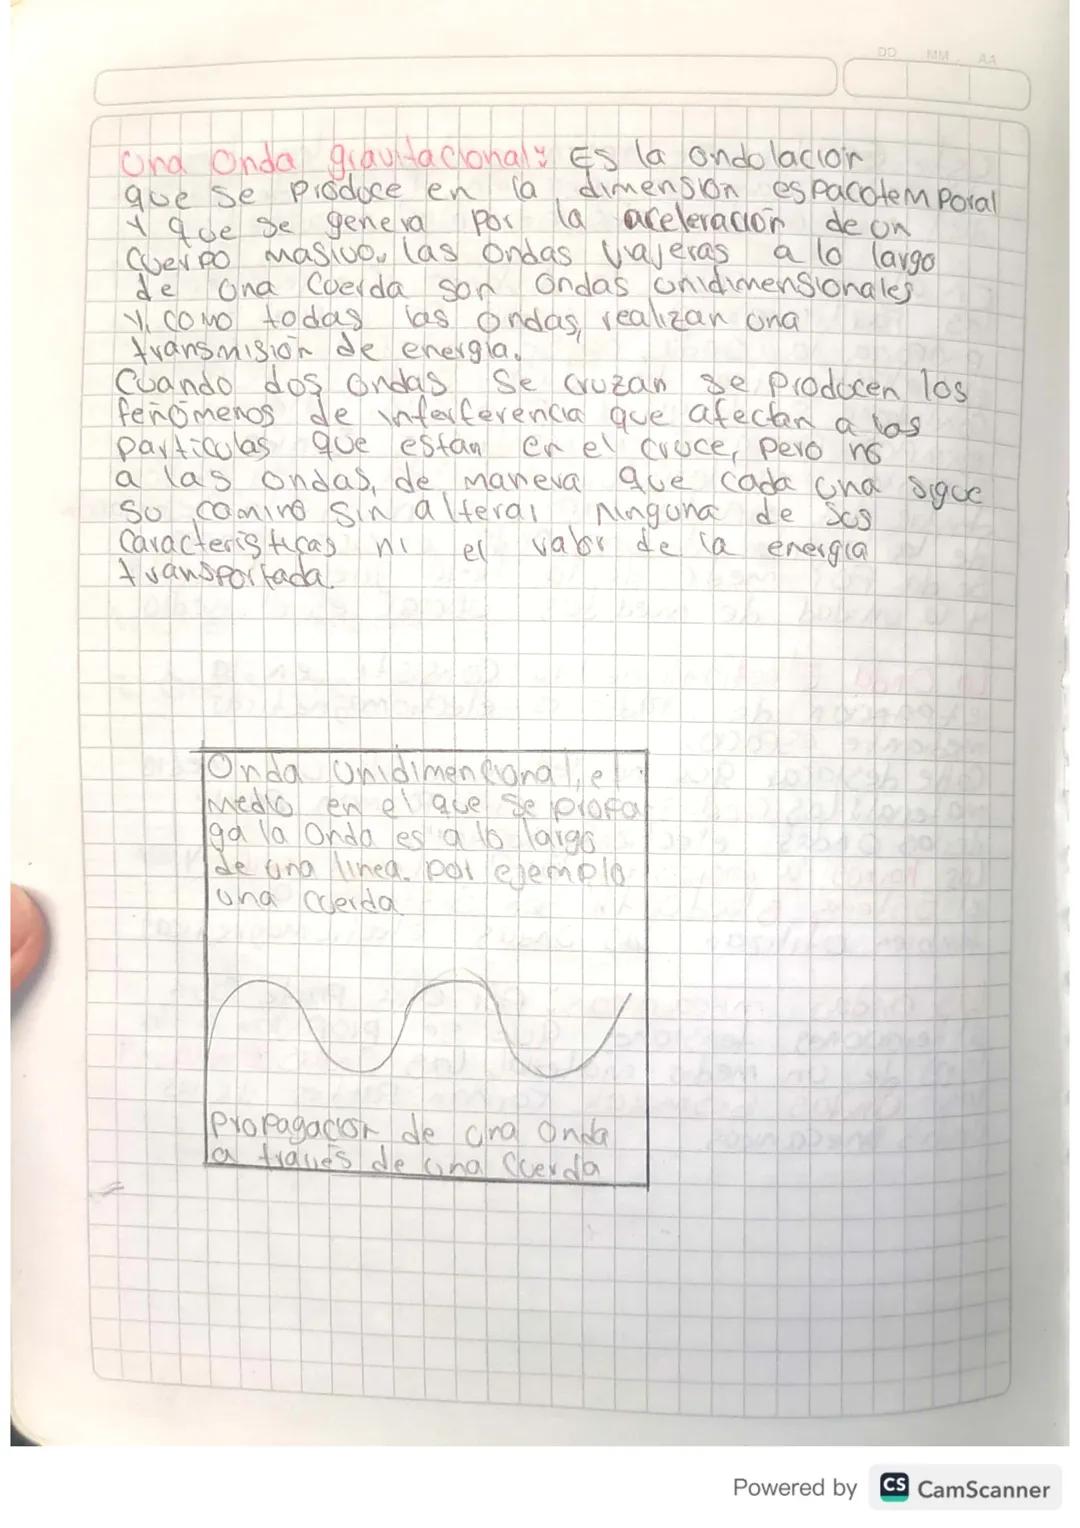 DD MM AA
Una Onda gravitacional: Es la Ondolación
que se Produce en la dimensión espacotemporal
y que se genera por la aceleración de un
Cuerpo masivo. las ondas viajeras a lo largo
de Una Cuerda son Ondas unidimensionales
y, como todas las ondas, realizan una
transmisión de energía.
Cuando dos ondas se cruzan se Producen los
feñómenos de inferferencia que afectan a las
partículas que están en el cruce, pero no
a las ondas, de manera que cada una sigue
su camino sin alterar ninguna de sus
Características ni el valor de la energía
transportada.
Onda Unidimencional, el
medio en el que se propa
ga la Onda es a lo largo
de una línea. por ejemplo
una cuerda
Propagación de una Onda
a través de una Cuerda
Powered by CS CamScanner